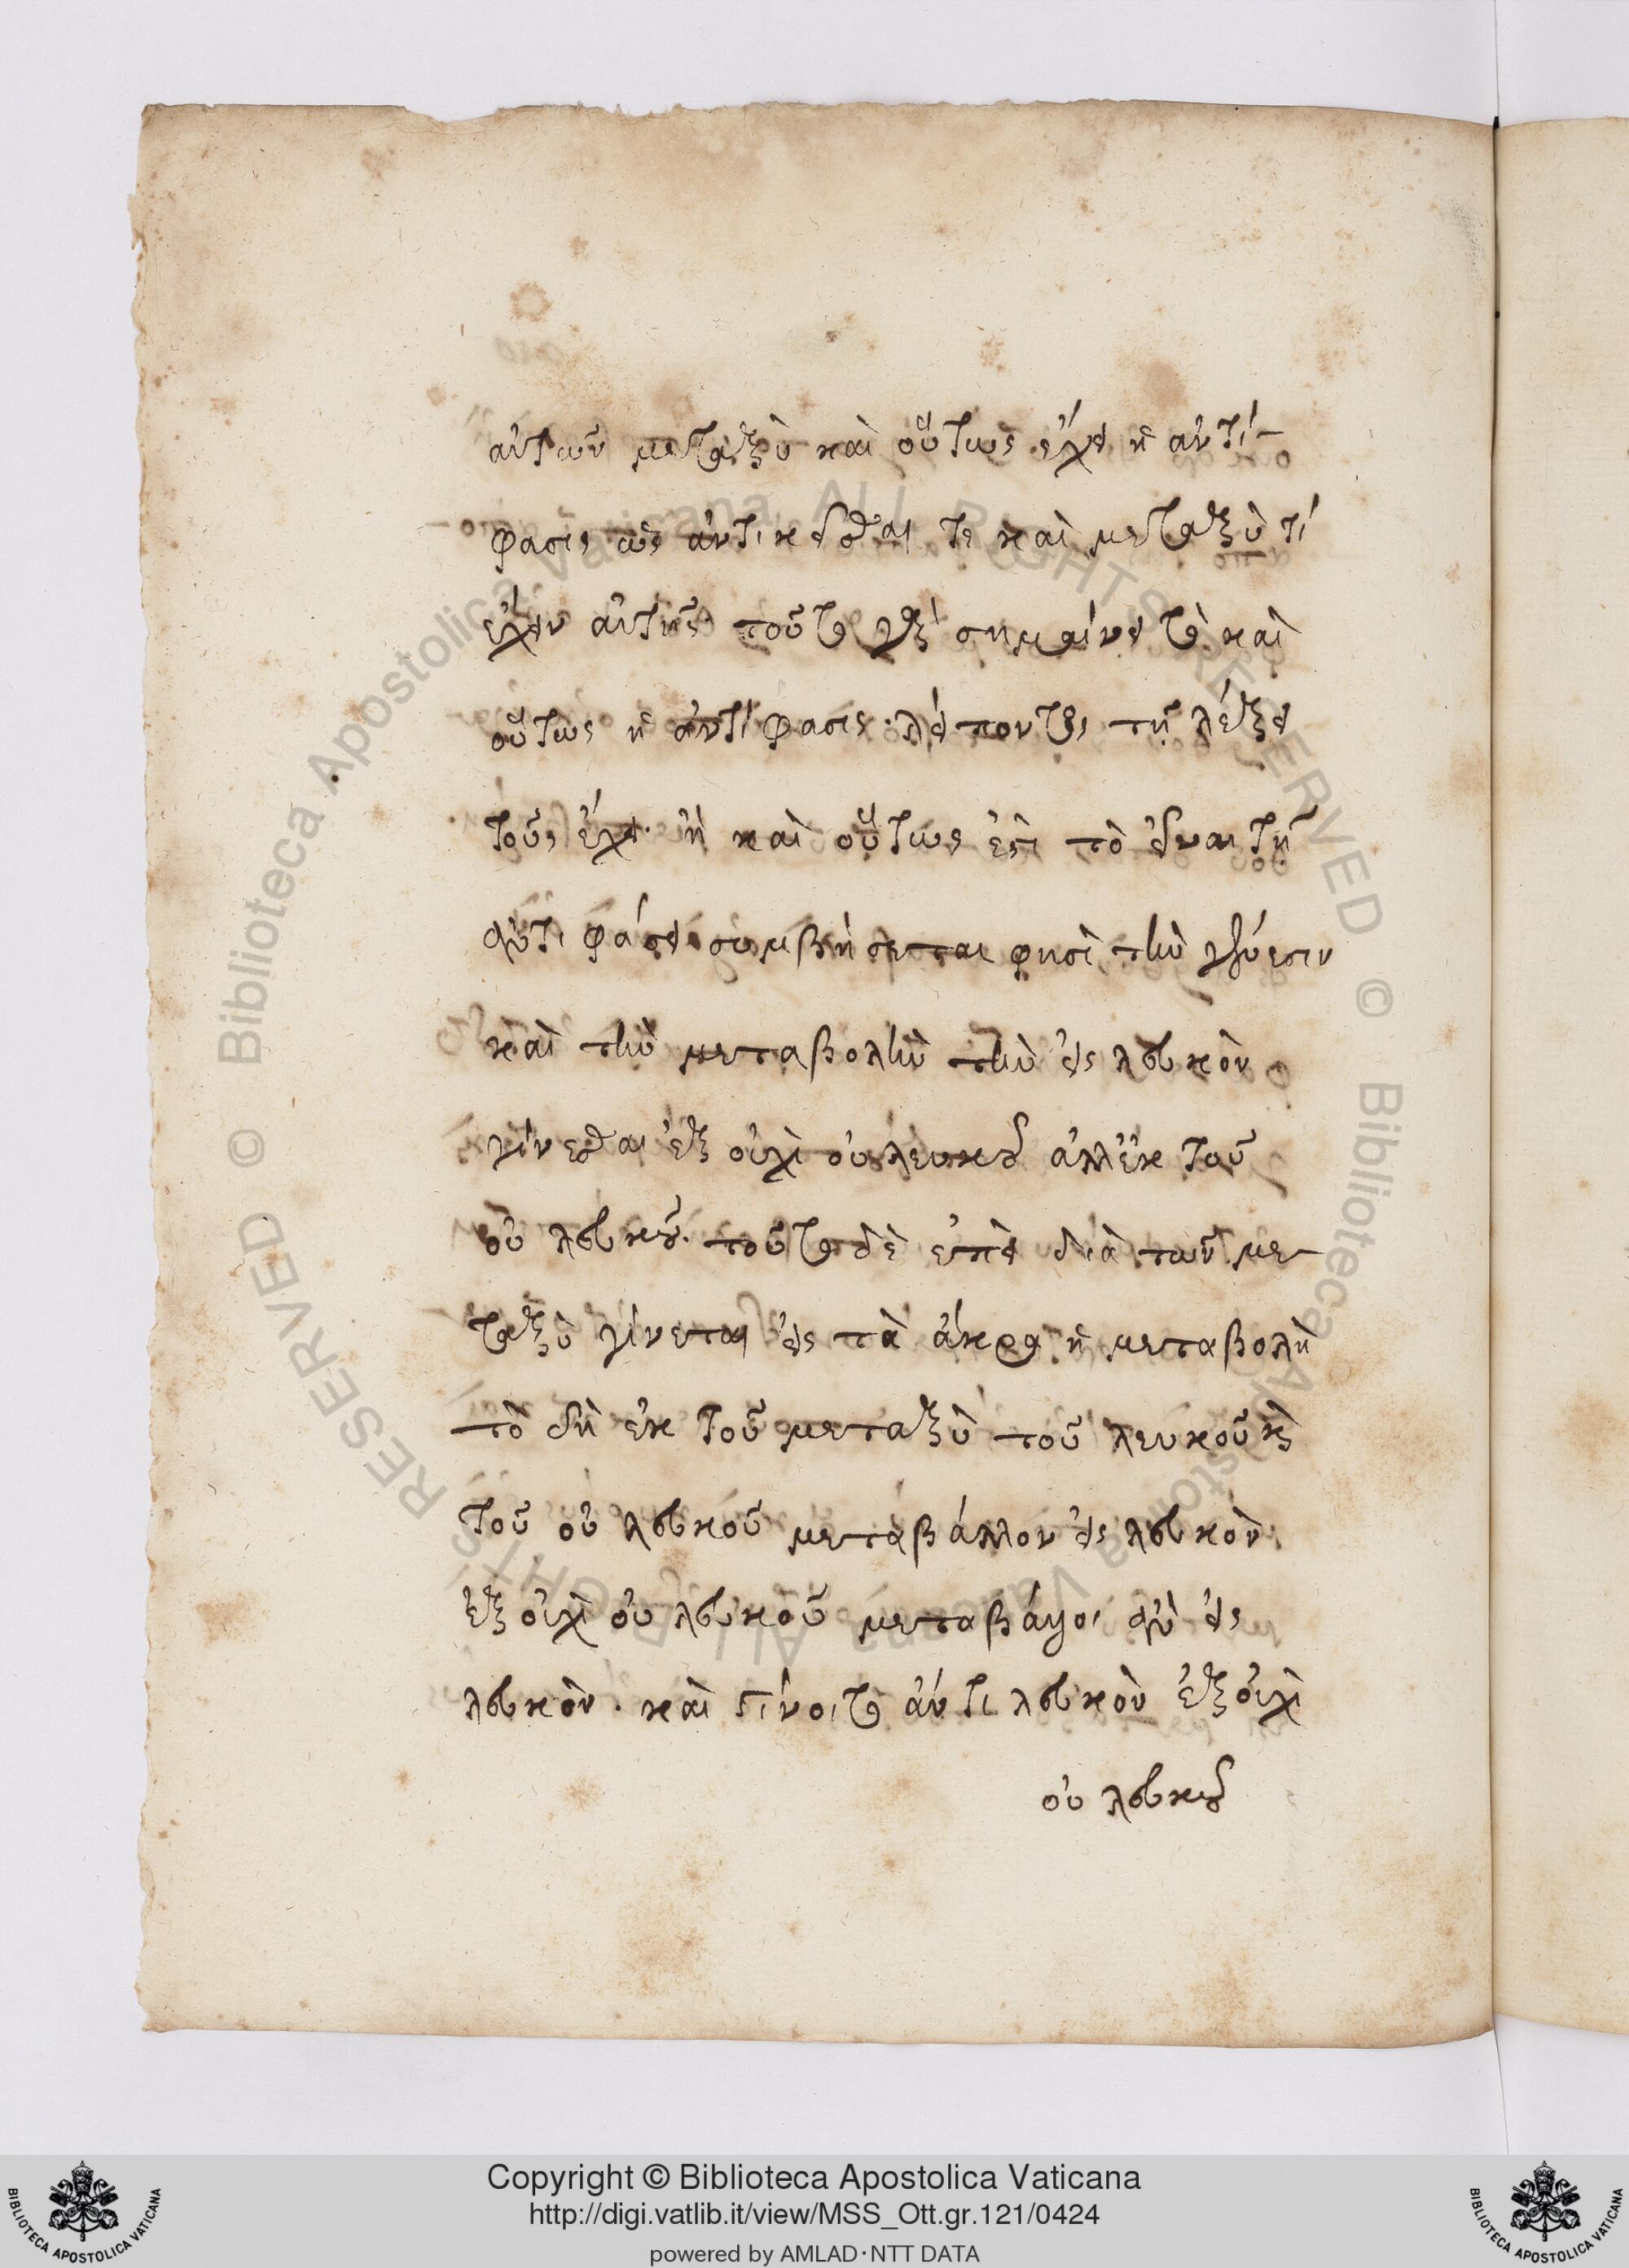 αὐτῶν μεταξὺ καὶ οὕτως ἔχει ἡ ἀντί-
φασις ὡς ἀντικεῖσθαι τε καὶ μεταξὺ τί
ἔχειν αὐτῆς· τοῦτο γὰρ σημαίνει τὸ καὶ
οὕτως ἡ ἀντίφασις· λείποντος τῇ λέξει
τοῦ, ἔχει· ἢ καὶ οὕτως ἐστὶ τὸ εἶναι τῇ
ἀντιφάσει· συμβήσεται φησὶ τὴν γένεσιν
καὶ τὴν μεταβολὴν τὴν εἰς λευκὸν
γίνεσθαι ἐξ οὐχὶ οὐ λευκοῦ ἀλλ' ἐκ τοῦ
οὐ λευκοῦ· τοῦτο δὲ ἐπεὶ διὰ τῶν με-
ταξὺ γίνεται εἰς τὰ ἄκρα ἡ μεταβολὴ
τὸ δὴ ἐκ τοῦ μεταξὺ τοῦ λευκοῦ κὶ
τοῦ οὐ λευκοῦ μεταβάλλον εἰς λευκὸν
ἐξ οὐχὶ οὐ λευκοῦ μεταβάλλοι ἂν εἰς
λευκὸν· καὶ γίνοιτο ἄν τι λευκὸν ἐξ οὐχὶ
οὐ λευκοῦ
Copyright © Biblioteca Apostolica Vaticana
http://digi.vatlib.it/view/MSS_Ott.gr.121/0424
powered by AMLAD·NTT DATA
BIBLIOTECA APOSTOLICA VATICANA
BIBLIOTECA APOSTOLICA VATICANA